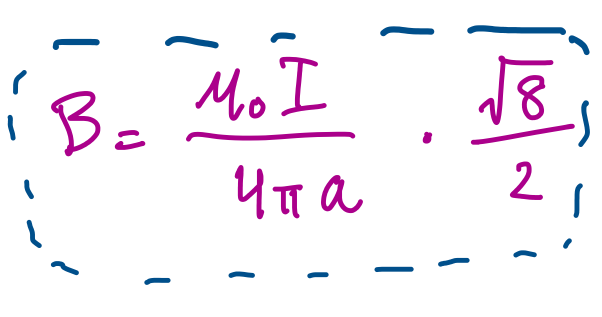 B = μ₀I / 4πa · √8 / 2